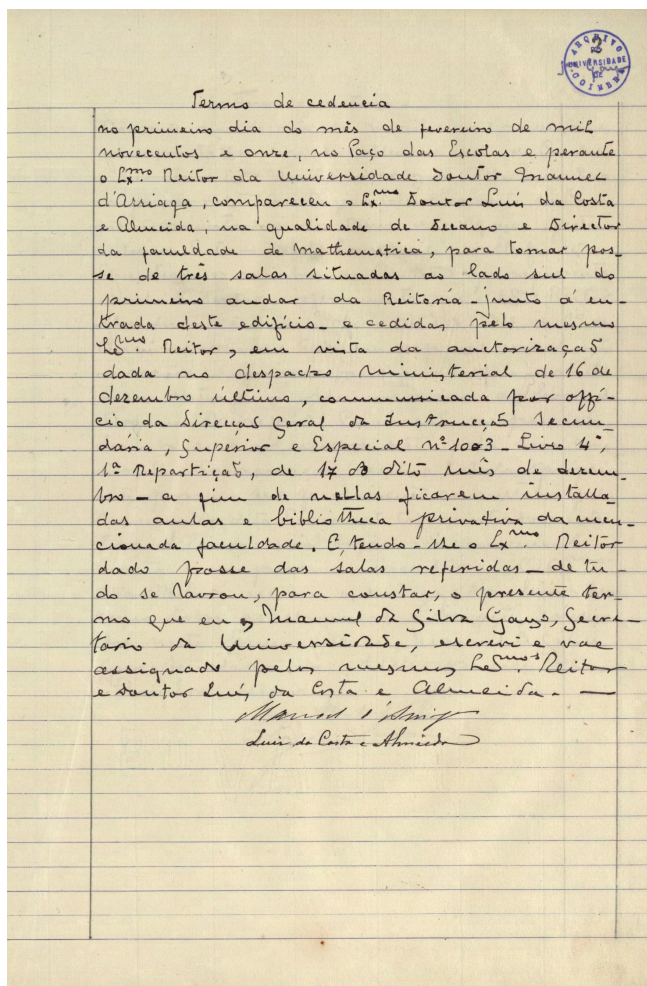 2
ARQUIVO
DA
UNIVERSIDADE
DE
COIMBRA
Termo de cedencia
no primeiro dia do mês de fevereiro de mil
novecentos e onze, no Paço das Escolas e perante
o Ex.mo Reitor da Universidade Doutor Manuel
d'Arriaga, compareceu o Ex.mo Doutor Luís da Costa
e Almeida, na qualidade de Decano e Director
da faculdade de Mathematica, para tomar pos-
se de três salas situadas ao lado sul do
primeiro andar da Reitoria - junto á en-
trada deste edifício - e cedidas pelo mesmo
Ex.mo Reitor, em vista da auctorização
dada no despacho ministerial de 16 de
dezembro último, communicada por offí-
cio da Direcção Geral da Instrucção Secun-
dária, Superior e Especial nº 1003 - Livro 4º,
1ª Repartição, de 17 do dito mês de dezem-
bro - a fim de nellas ficarem installa-
das aulas e bibliotheca privativa da men-
cionada faculdade. E, tendo-lhe o Ex.mo Reitor
dado posse das salas referidas - de tu-
do se lavrou, para constar, o presente ter-
mo que eu, Manuel da Silva Gayo, Secre-
tario da Universidade, escrevi e vae
assignado pelos mesmos Ex.mos Reitor
e Doutor Luís da Costa e Almeida. —
Manoel d'Arriaga
Luiz da Costa e Almeida